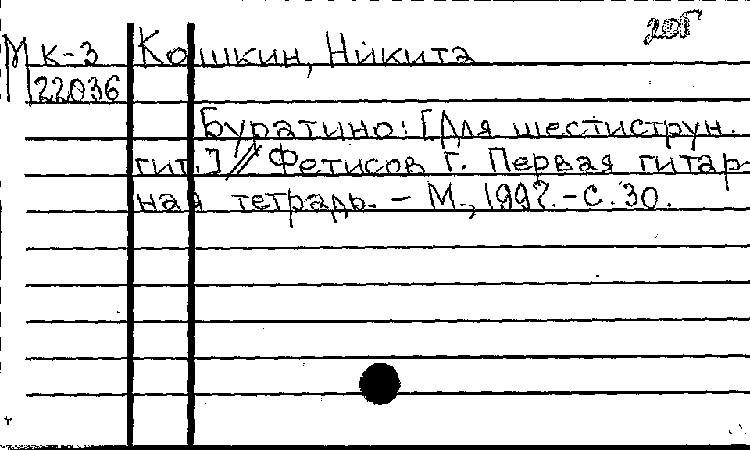 205
М к-3 Кошкин, Никита
22036
Буратино: [Для шестиструн.
гит.] // Фетисов Г. Первая гитар-
ная тетрадь. - М., 1992. - С. 30.